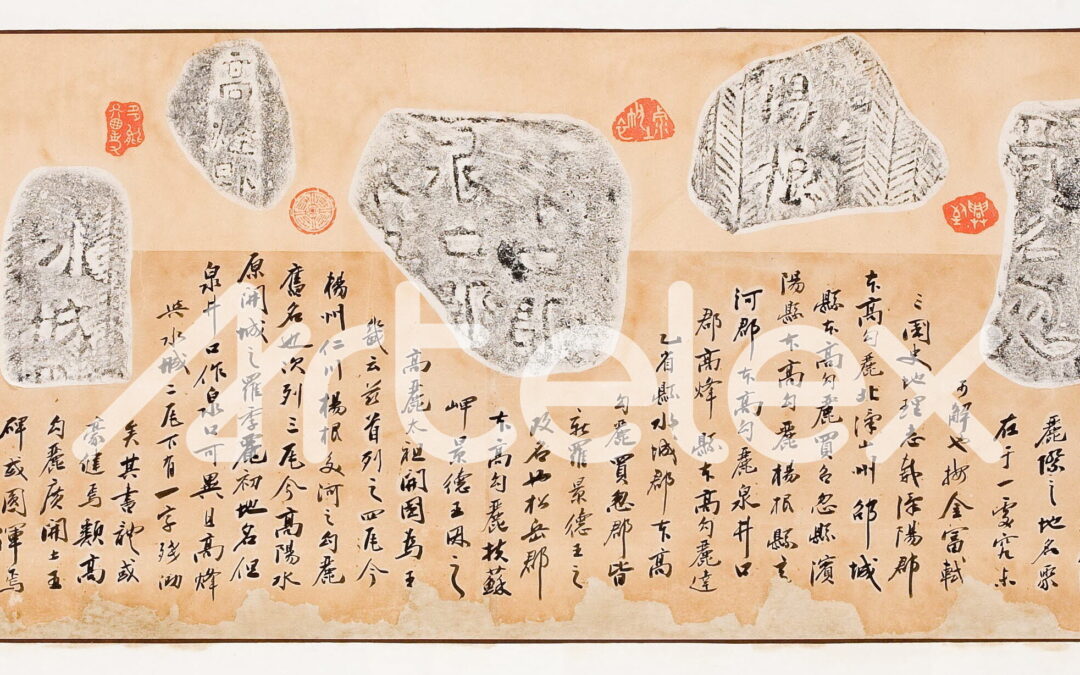 麗際之地名聚
在于一處究未
可解也按金富軾
三國史地理志載漢陽郡
本高勾麗北漢山州邵城
縣本高勾麗買召忽縣濱
陽縣本高勾麗楊根縣交
河郡本高勾麗泉井口
郡高烽縣本高勾麗達
乙省縣水城郡本高
勾麗買忽郡皆
新羅景德王之
改名也松岳郡
本高勾麗扶蘇
岬景德王因之
高麗太祖開國爲王
畿云茲首列之四瓦今
楊州仁川楊根交河之勾麗
舊名也次列三瓦今高陽水
原開城之羅季麗初地名但
泉井口作泉口可異且高烽
與水城二瓦下有一字殘泐
矣其書體或
豪健焉類高
勾麗廣開土王
碑或圓渾焉
高烽
水城
Artelex